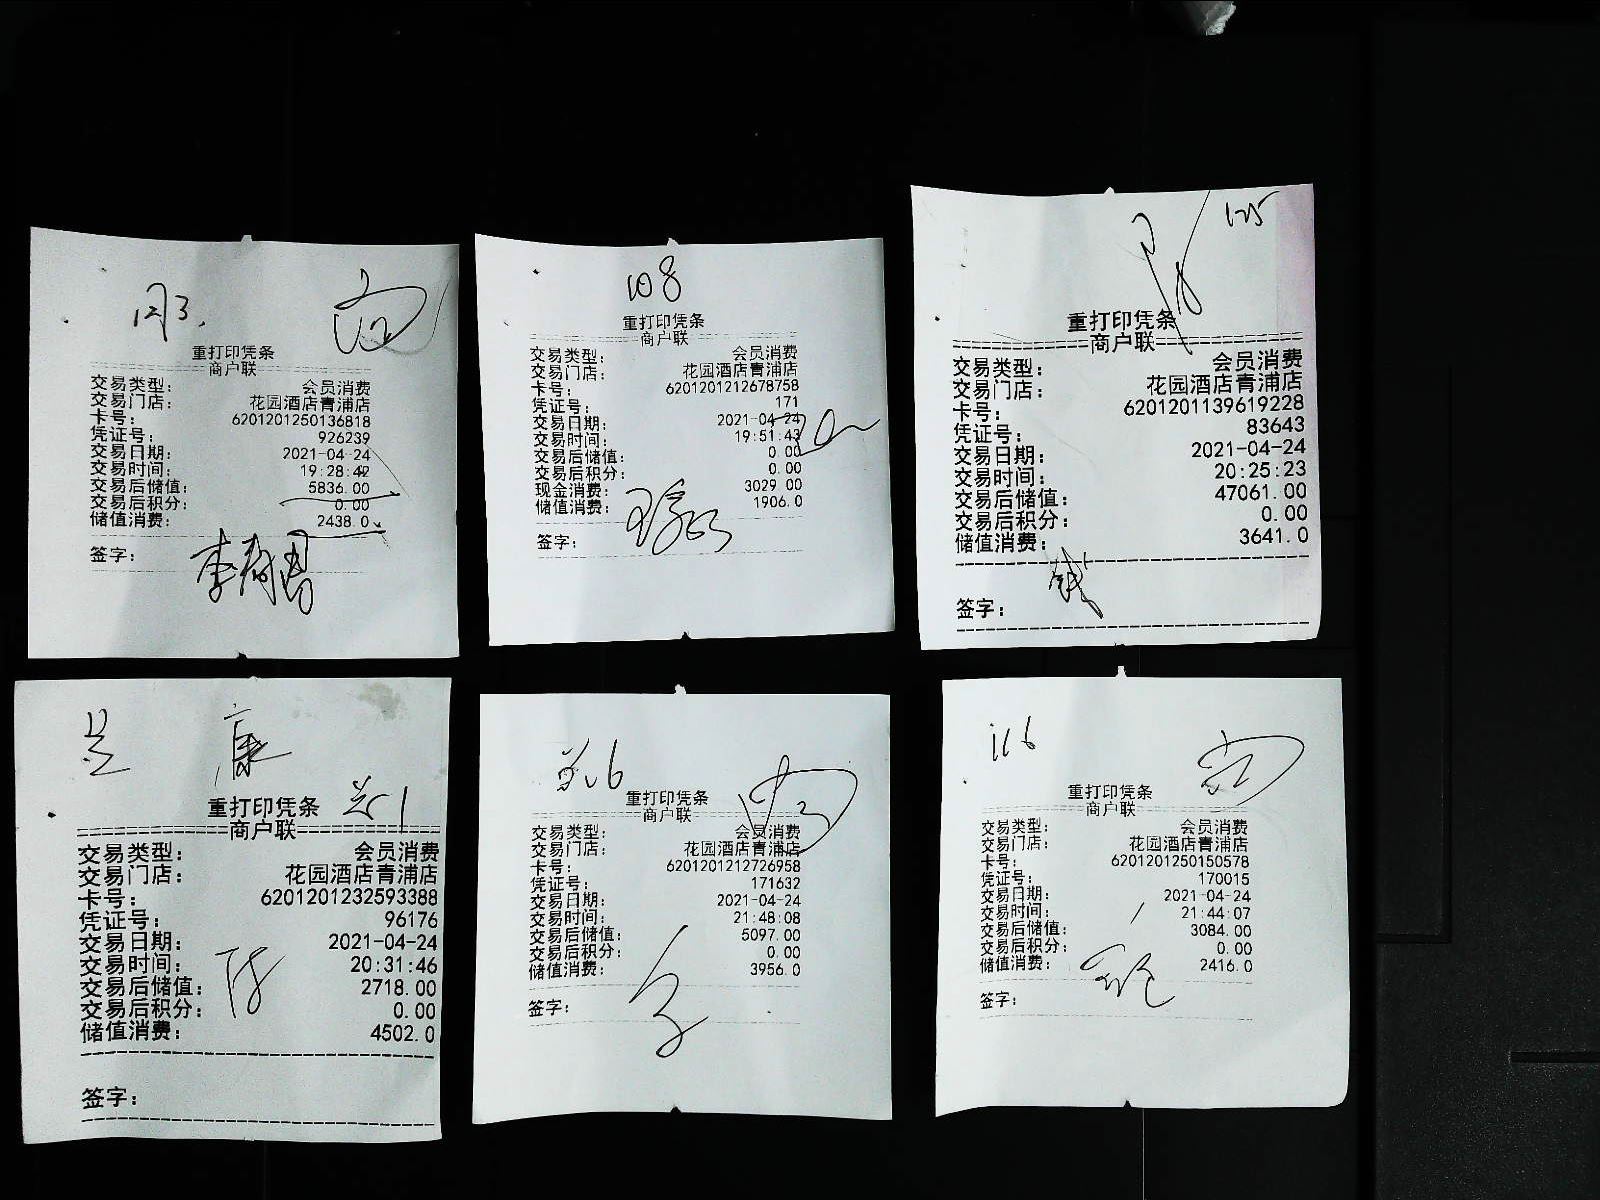 重打印凭条
商户联
交易类型： 会员消费
交易门店： 花园酒店青浦店
卡号： 6201201250136818
凭证号： 926239
交易日期： 2021-04-24
交易时间： 19:28:42
交易后储值： 5836.00
交易后积分： 0.00
储值消费： 2438.0
签字：
108
重打印凭条
商户联
交易类型： 会员消费
交易门店： 花园酒店青浦店
卡号： 6201201212678758
凭证号： 171
交易日期： 2021-04-24
交易时间： 19:51:43
交易后储值： 0.00
交易后积分： 0.00
现金消费： 3029.00
储值消费： 1906.0
签字：
125
重打印凭条
商户联
交易类型： 会员消费
交易门店： 花园酒店青浦店
卡号： 6201201139619228
凭证号： 83643
交易日期： 2021-04-24
交易时间： 20:25:23
交易后储值： 47061.00
交易后积分： 0.00
储值消费： 3641.0
签字：
康
重打印凭条
商户联
交易类型： 会员消费
交易门店： 花园酒店青浦店
卡号： 6201201232593388
凭证号： 96176
交易日期： 2021-04-24
交易时间： 20:31:46
交易后储值： 2718.00
交易后积分： 0.00
储值消费： 4502.0
签字：
重打印凭条
商户联
交易类型： 会员消费
交易门店： 花园酒店青浦店
卡号： 6201201212726958
凭证号： 171632
交易日期： 2021-04-24
交易时间： 21:48:08
交易后储值： 5097.00
交易后积分： 0.00
储值消费： 3956.0
签字：
116
重打印凭条
商户联
交易类型： 会员消费
交易门店： 花园酒店青浦店
卡号： 6201201250150578
凭证号： 170015
交易日期： 2021-04-24
交易时间： 21:44:07
交易后储值： 3084.00
交易后积分： 0.00
储值消费： 2416.0
签字：